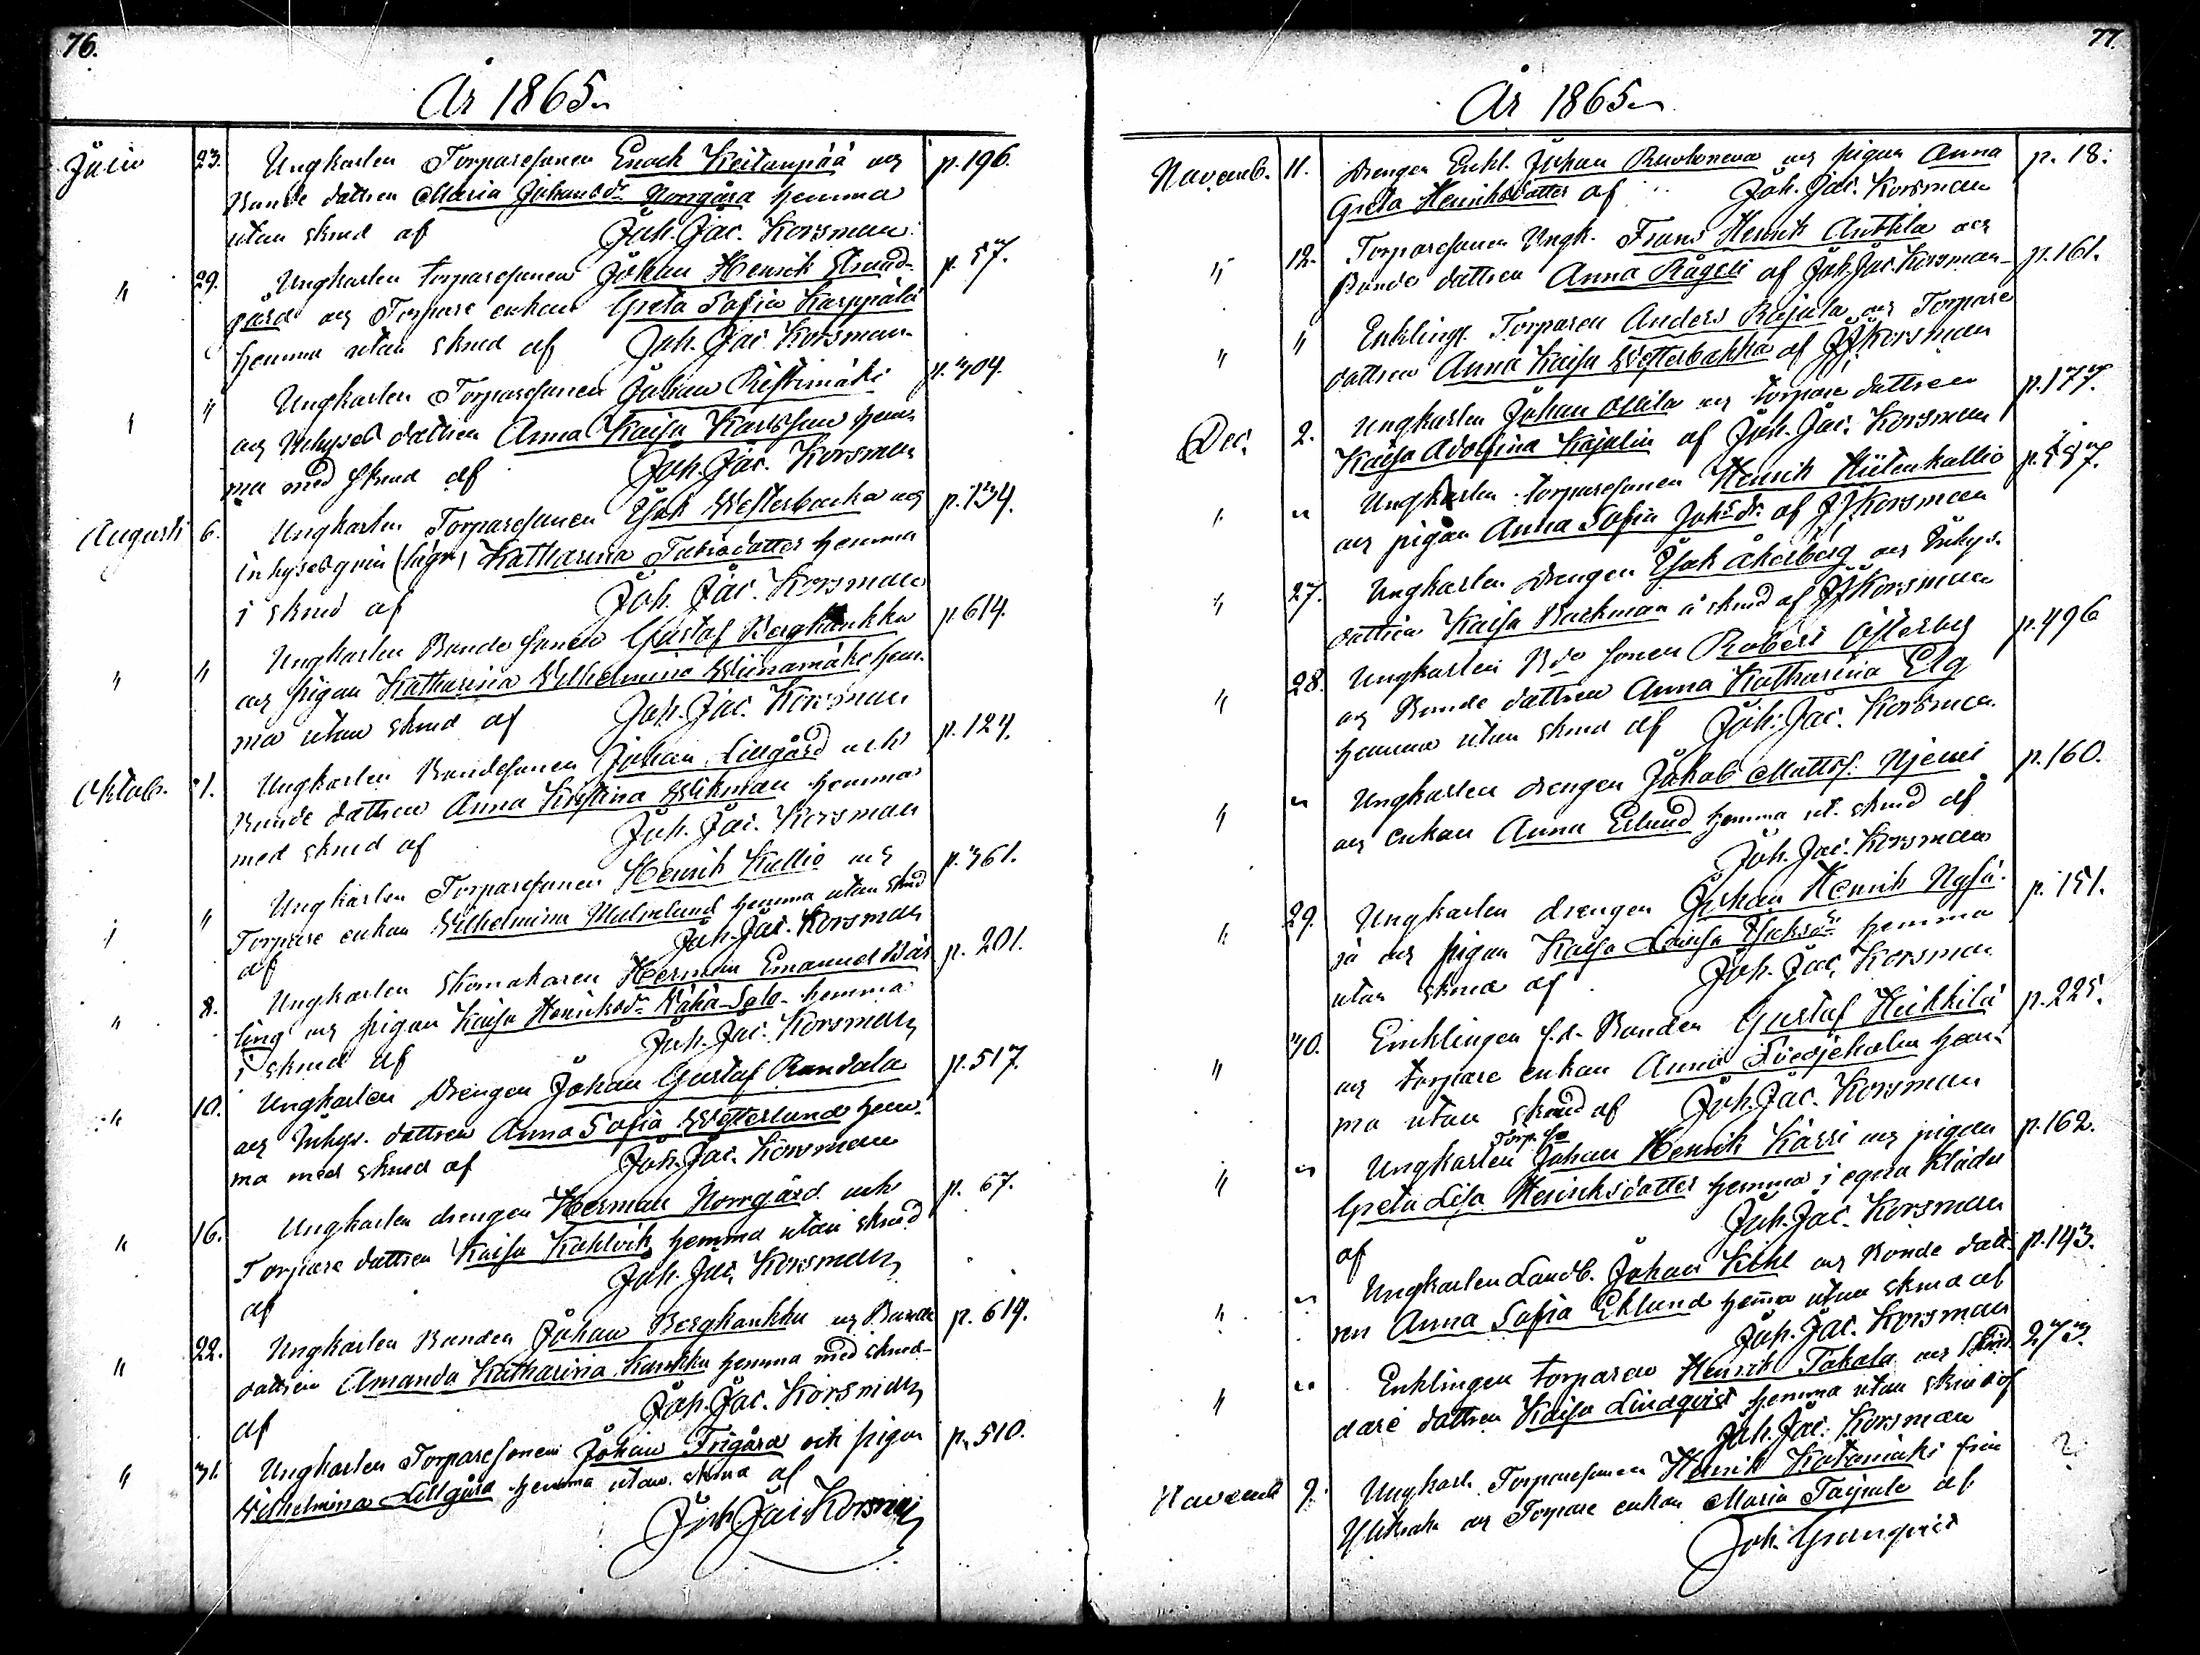 76.
År 1865
Julii 23. Ungkarlen Torparesonen Enoch Keitanpää och p. 196.
Bonde dottren Maria Johansdr Norrgård hemma
utan skrud af Joh. Jac. Korsman
" 29. Ungkarlen torparesonen Johan Henrik Strand- p. 57.
gård och Torpare enkan Greta Sofia Karppälä
hemma utan skrud af Joh. Jac. Korsman
" " Ungkarlen Torparesonen Johan Ristimäki p. 304.
och Inhyses dottren Anna Kaisa Karlsson hem-
ma med skrud af Joh. Jac. Korsman
Augusti 6. Ungkarlen Torparesonen Isak Westerbacka och p. 134.
inhyses (pigan) Katharina dotter hemma
i skrud af Joh. Jac. Korsman
" " Ungkarlen Bonde sonen Gustaf Bergkankku p. 614.
och pigan Katharina Wilhelmina Wiinamäki hem-
ma utan skrud af Joh. Jac. Korsman
Oktob. 1. Ungkarlen Bondesonen Johan Lillgård och p. 124.
Bonde dottren Anna Kristina Wikman hemma
med skrud af Joh. Jac. Korsman
" " Ungkarlen Torparesonen Henrik Kallio och p. 361.
Torpare enkan Wilhelmina Malmlund hemma utan skrud
af Joh. Jac. Korsman
" 8. Ungkarlen skomakaren Herman Emanuel Wäs p. 201.
ling och pigan Kaisa Henriksdr Wähä-Salo hemma
i skrud af Joh. Jac. Korsman
" 10. Ungkarlen Drengen Johan Gustaf Randala p. 517.
och Inhys. dottren Anna Sofia Westerlund hem-
ma med skrud af Joh. Jac. Korsman
" 16. Ungkarlen drengen Herman Norrgård och p. 67.
Torpare dottren Kaisa Kahlvik hemma utan skrud
af Joh. Jac. Korsman
" 22. Ungkarlen Bonden Johan Bergkankku och Bonde p. 614.
dottren Amanda Katharina Kankku hemma med skrud
af Joh. Jac. Korsman
" 31. Ungkarlen Torparesonen Johan Frigård och pigan p. 510.
Wilhelmina Lillgård hemma utan skrud af
Joh. Jac. Korsman
77.
År 1865
Novemb. 11. Drengen Enkl. Johan och pigan Anna p. 18.
Greta Henriksdotter af Joh. Jac. Korsman
" 12. Torparesonen Ungk. Frans Henrik Anttila och p. 161.
Bonde dottren Anna Rågeli af Joh. Jac. Korsman
" " Enkling. Torparen Anders Rajula och Torpare
dottren Anna Kaisa Westerbakka af JJKorsman
Dec. 2. Ungkarlen Johan Ollila och torpare dottren p. 177.
Kaisa Adolfina Kajalin af Joh. Jac. Korsman
" " Ungkarlen torparesonen Henrik Hietenkallio p. 557.
och pigan Anna Sofia Johsdr af JJKorsman
" 27. Ungkarlen Drengen Isak Åkerberg och Inhys-
dottren Kaisa Backman i skrud af JJKorsman
" 28. Ungkarlen Bde sonen Robert Österberg p. 496
och Bonde dottren Anna Katharina Elg
hemma utan skrud af Joh. Jac. Korsman
" " Ungkarlen drengen Jakob Mattss. Njemi p. 160.
och enkan Anna Erlund hemma ut. skrud af
Joh. Jac. Korsman
" 29. Ungkarlen drengen Johan Henrik Nyså- p. 151.
rå och pigan Kaisa Lovisa Isaksdr hemma
utan skrud af Joh. Jac. Korsman
" 30. Enklingen f.d. Bonden Gustaf Heikkilä p. 225.
och torpare enkan Anna Liedjeholm hem-
ma utan skrud af Joh. Jac. Korsman
" " Ungkarlen Torp. so Johan Henrik Kärri och pigan p. 162.
Greta Lisa Henriksdotter hemma i egna kläder
af Joh. Jac. Korsman
" " Ungkarlen Landb. Johan Kihl och Bonde dott- p. 143.
ren Anna Sofia Eklund hemma utan skrud af
Joh. Jac. Korsman
" " Enklingen torparen Henrik Takala och Skräd 273.
dare dottren Kaisa Lindqvist hemma utan skrud af
Joh. Jac. Korsman
Novemb 9. Ungkarl. Torparesonen Henrik Katamäki från ?
Ylistaro och Torpare enkan Maria Tarjula af
Joh. Grönqvist